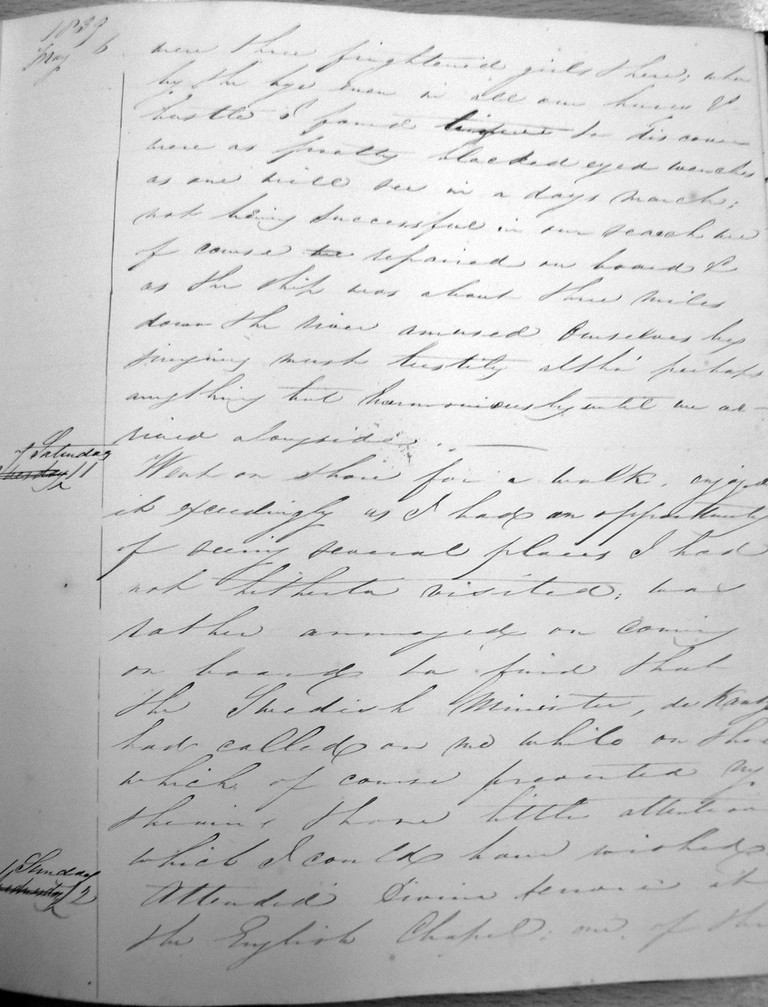 1839
May 6
were three frightened girls there, who
by the bye even in all our hurry &
bustle I found to discover
were as pretty blacked eyed wenches
as one will see in a days march;
not being successful in our search we
of course repaired on board &
as the ship was about three miles
down the river amused ourselves by
singing most lustily altho' perhaps
anything but harmoniously until we ar-
rived alongside.
Saturday
11
Went on shore for a walk, enjoyed
it exceedingly as I had an opportunity
of seeing several places I had
not hitherto visited; was
rather annoyed on coming
on board to find that
the Swedish Minister, de
had called on me while on shore
which of course prevented my
shewing those little attentions
which I could have wished.
Sunday
12
Attended Divine service at
the English Chapel; one of the